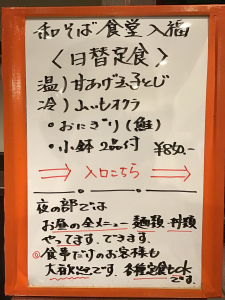 和そば食堂 入福
〈日替定食〉
温) 甘あげ玉子とじ
冷) 山いもオクラ
・おにぎり(鮭)
・小鉢2品付 ¥850-
⇒ 入口こちら ⇒
夜の部では
お昼の全メニュー 麺類・丼類
やってます、できます。
◎食事だけのお客様も
大歓迎です。各種定食もok
です。